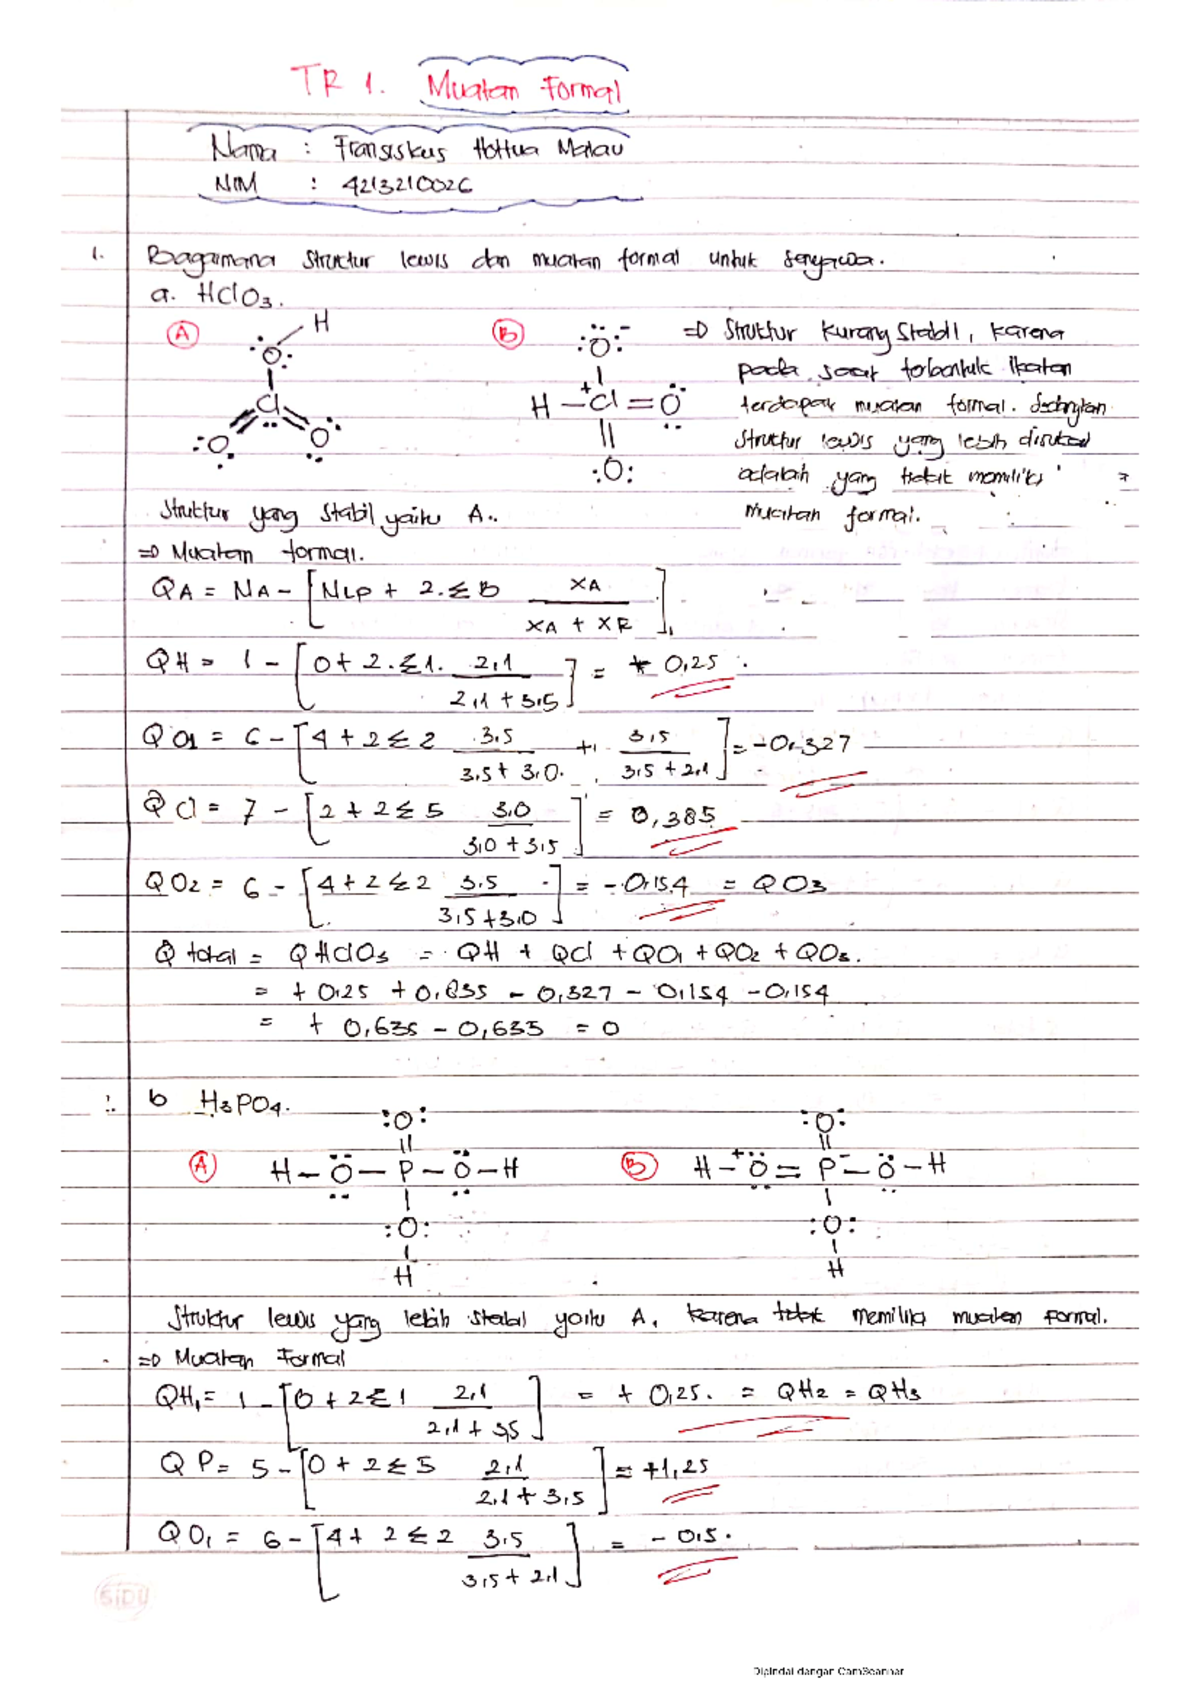 TR 1. Muatan Formal
Nama : Fransiskus Hottua Malau
NIM : 4213210026
1. Bagaimana struktur lewis dan muatan formal untuk senyawa.
a. HClO3.
A
B
⇒ Struktur kurang stabil, karena
pada saat terbentuk ikatan
terdapat muatan formal. Sedangkan
struktur lewis yang lebih disukai
adalah yang tidak memiliki
muatan formal.
H
:O:
Cl
:O: O:
:O:-
H - Cl+ = O
:O:
Struktur yang stabil yaitu A..
⇒ Muatan formal.
QA = NA - [NLP + 2.Σ B XA / XA + XR]
QH = 1 - [0 + 2.Σ1. 2,1 / 2,1 + 3,5] = + 0,25.
QO1 = 6 - [4 + 2 Σ 2 3,5 / 3,5 + 3,0. + 3,5 / 3,5 + 2,1] = -0,327
QCl = 7 - [2 + 2 Σ 5 3,0 / 3,0 + 3,5] = 0,385
QO2 = 6 - [4 + 2 Σ 2 3,5 / 3,5 + 3,0] = -0,154 = QO3
Q total = QHClO3 = QH + QCl + QO1 + QO2 + QO3.
= + 0,25 + 0,835 - 0,327 - 0,154 - 0,154
= + 0,635 - 0,635 = 0
b H3PO4.
:O: :O:
A H - O - P - O - H B H - +O = P- - O - H
:O: :O:
H H
Struktur lewis yang lebih stabil yaitu A, karena tidak memiliki muatan formal.
⇒ Muatan Formal
QH1 = 1 - [0 + 2 Σ 1 2,1 / 2,1 + 3,5] = + 0,25. = QH2 = QH3
QP = 5 - [0 + 2 Σ 5 2,1 / 2,1 + 3,5] = +1,25
QO1 = 6 - [4 + 2 Σ 2 3,5 / 3,5 + 2,1] = - 0,5.
SiDU
Dipindai dengan CamScanner